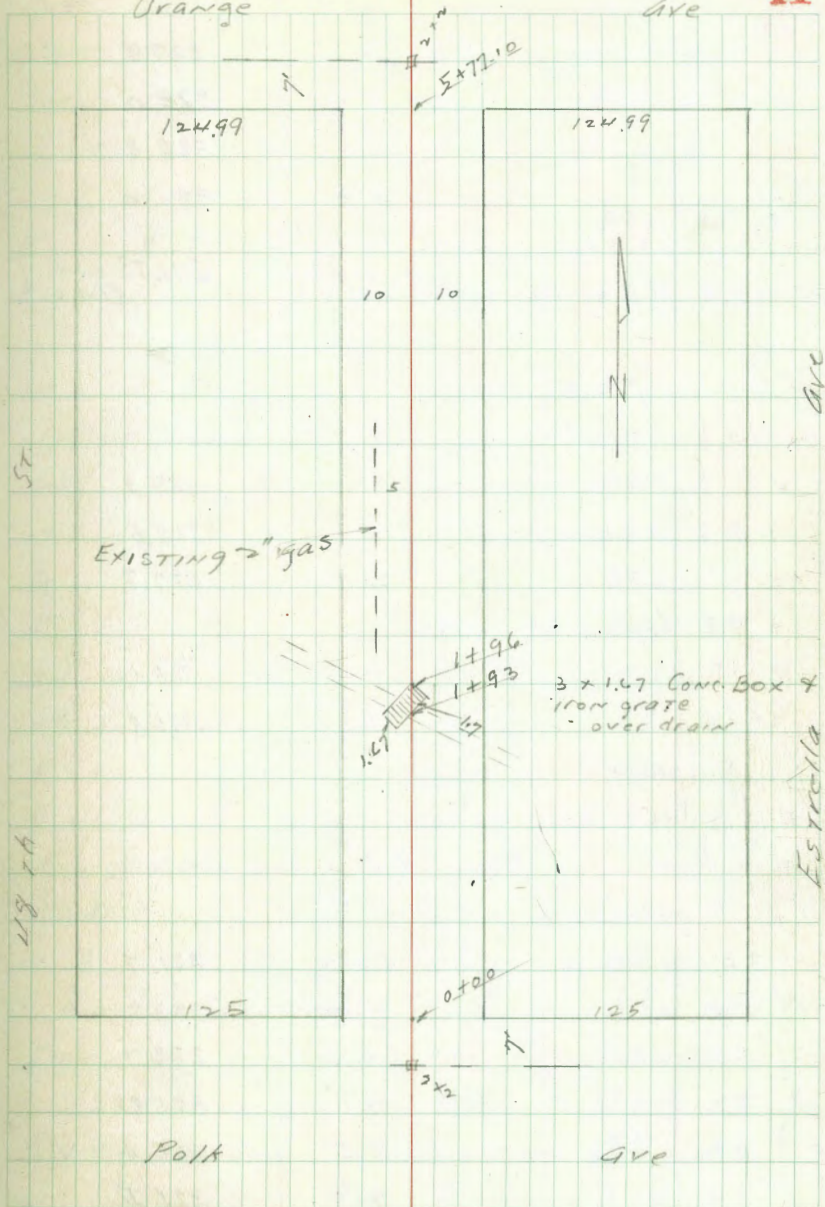 Orange Ave
2x2
7
5+77.10
124.99 124.99
10 10
N
St.
Ave
5
EXISTING 2" gas
1+96
1+93
3 x 1.67 Conc. Box &
iron grate
over drain
1.67
Estrella
48 th
0+00
125 125
7
2x2
Polk Ave